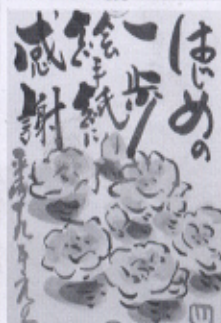 はじめの
一歩
絵手紙に
感謝